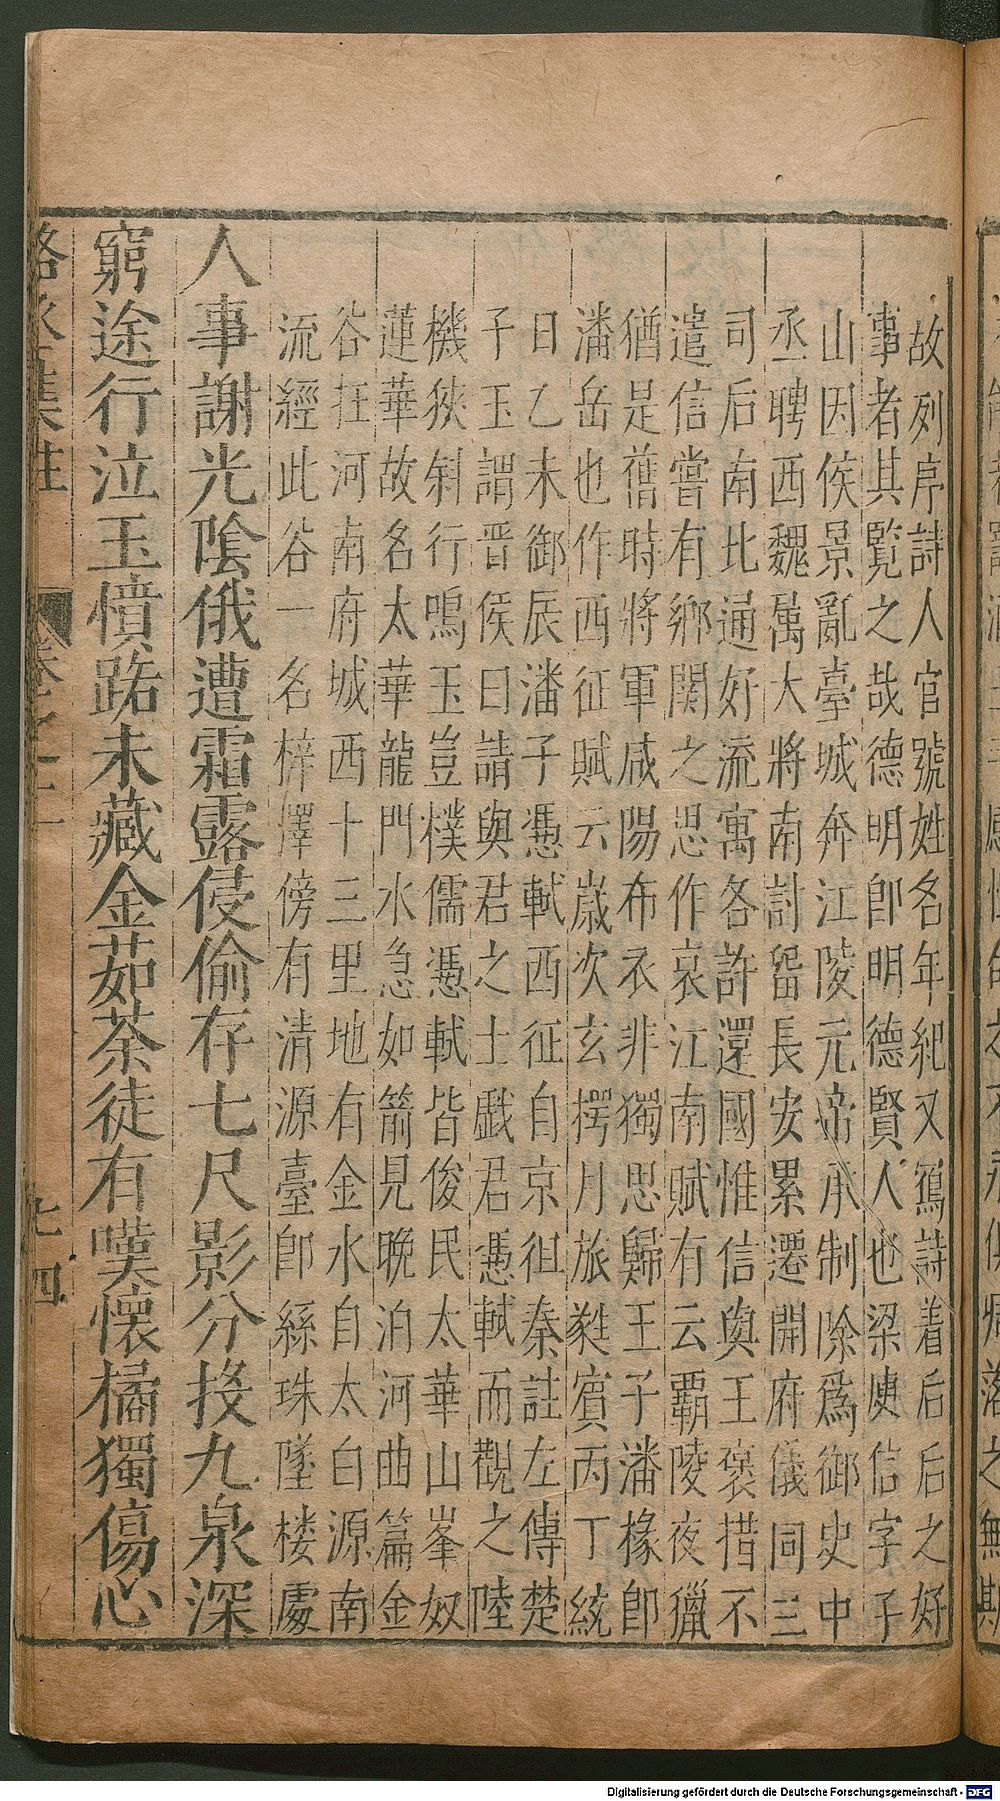 故列序詩人官號姓名年紀又鴈詩着后后之好
事者其覧之哉德明卽明德賢人也梁庾信字子
山因侯景亂臺城奔江陵元帝承制除爲御史中
丞聘西魏属大將南討畱長安累遷開府儀同三
司后南北通好流寓各許還國惟信與王褒措不
遣信嘗有鄉関之思作哀江南賦有云覇陵夜獵
猶是舊時將軍咸陽布衣非獨思歸王子潘椽卽
潘岳也作西征賦云歳次玄枵月旅蕤賔丙丁統
日乙未御辰潘子憑軾西征自京徂秦註左傳楚
子玉謂晋侯曰請與君之士戱君憑軾而觀之陸
機狹斜行鳴玉豈樸儒憑軾皆俊民太華山峯奴
蓮華故名太華龍門水急如箭見晩泊河曲篇金
谷在河南府城西十三里地有金水自太白源南
流經此谷一名梓澤傍有清源臺卽綠珠墜楼處
人事謝光陰俄遭霜露侵偷存七尺影分投九泉深
窮途行泣玉憤路未藏金茹荼徒有嘆懷橘獨傷心
駱丞集註 卷之二 七四
Digitalisierung gefördert durch die Deutsche Forschungsgemeinschaft - DFG